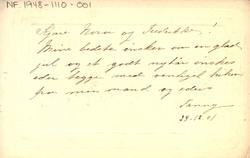 NF. 1948-1110-001
Kjære Nora og Fredrikke!
Mine bedste ønsker om en glad
jul og et godt nytår ønskes
eder begge med venligst hilsen
fra min mand og eders
Fanny
24.12.01